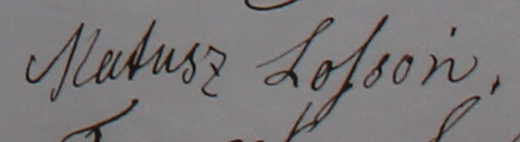 Matusz Lofson,